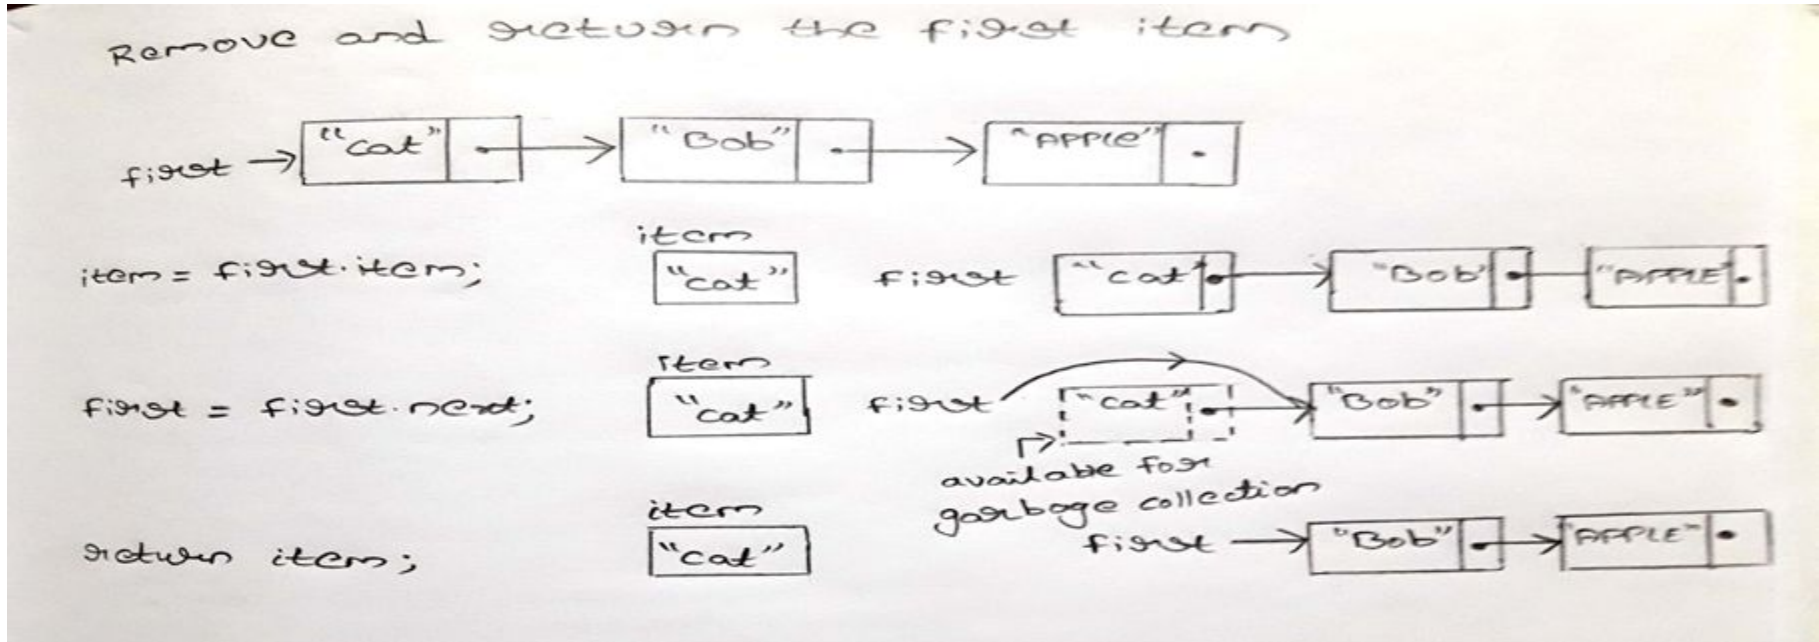 Remove and return the first item
first "cat" "Bob" "APPLE"
item
item = first.item; "cat" first "cat" "Bob" "APPLE"
item
first = first.next; "cat" first "cat" "Bob" "APPLE"
available for
garbage collection
item
return item; "cat" first "Bob" "APPLE"